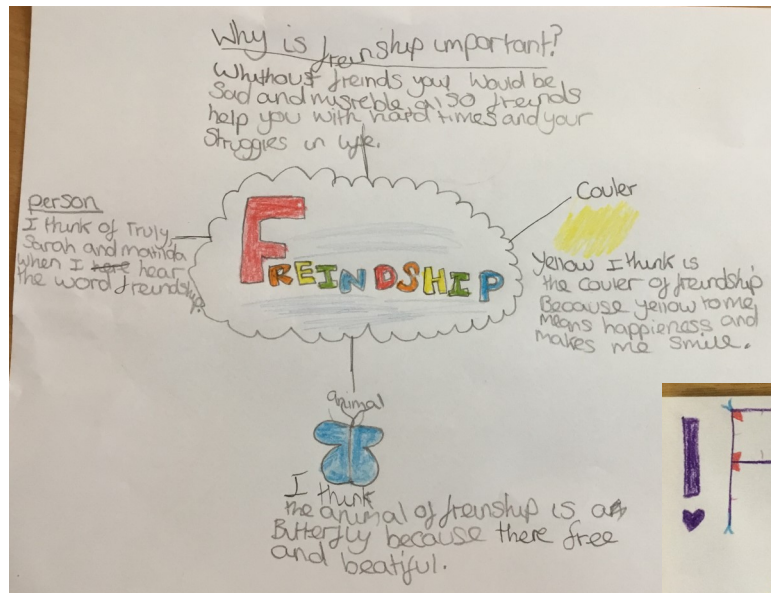 Why is freinship important?
Whithout freinds you would be
Sad and misreble, also freinds
help you with hard times and your
Struggles in lyfe.
person
I think of Truly
Sarah and matilda
when I here hear
the word freindship.
Couler
Yellow I think is
the couler of freindship
Because yellow to me
means happieness and
makes me smile.
FREINDSHIP
animal
I think
the animal of freinship is a
Butterfly because there free
and beatiful.